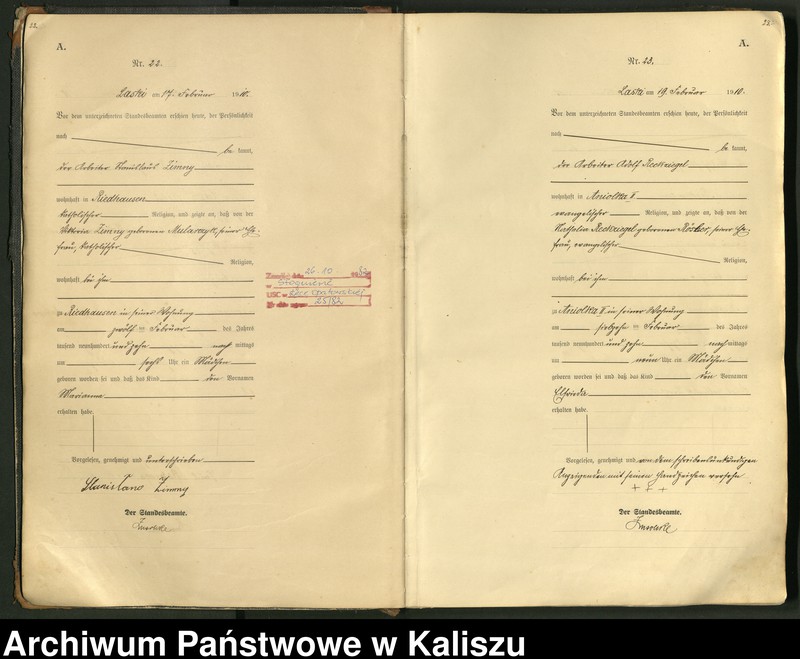 22.
A.
Nr. 22.
Laski am 17. Februar 1910.
Vor dem unterzeichneten Standesbeamten erschien heute, der Persönlichkeit
nach
be kannt,
der Arbeiter Stanislaus Zimny
wohnhaft in Riedhausen
katholischer Religion, und zeigte an, daß von der
Viktoria Zimny geborenen Mularczyk, seiner Ehe-
frau, katholischer
Religion,
wohnhaft bei ihm
zu Riedhausen in seiner Wohnung
am zwölf ten Februar des Jahres
tausend neunhundert und zehn nach mittags
um sechs Uhr ein Mädchen
geboren worden sei und daß das Kind den Vornamen
Marianna
erhalten habe.
Vorgelesen, genehmigt und unterschrieben
Zimny
Der Standesbeamte.
26.10
USC
25/82
23.
A.
Nr. 23.
Laski am 19. Februar 1910.
Vor dem unterzeichneten Standesbeamten erschien heute, der Persönlichkeit
nach
be kannt,
der Arbeiter Adolf
wohnhaft in Aniolka II
evangelischer Religion, und zeigte an, daß von der
geborenen Röske, seiner Ehe-
frau, evangelischer
Religion,
wohnhaft bei ihm
zu Aniolka II in seiner Wohnung
am siebzehn ten Februar des Jahres
tausend neunhundert und zehn nachmittags
um neun Uhr ein Mädchen
geboren worden sei und daß das Kind den Vornamen
Elfrieda
erhalten habe.
Vorgelesen, genehmigt und von dem schreibensunkundigen
Anzeigenden mit seinem Handzeichen versehen
+ + +
Der Standesbeamte.
Archiwum Państwowe w Kaliszu